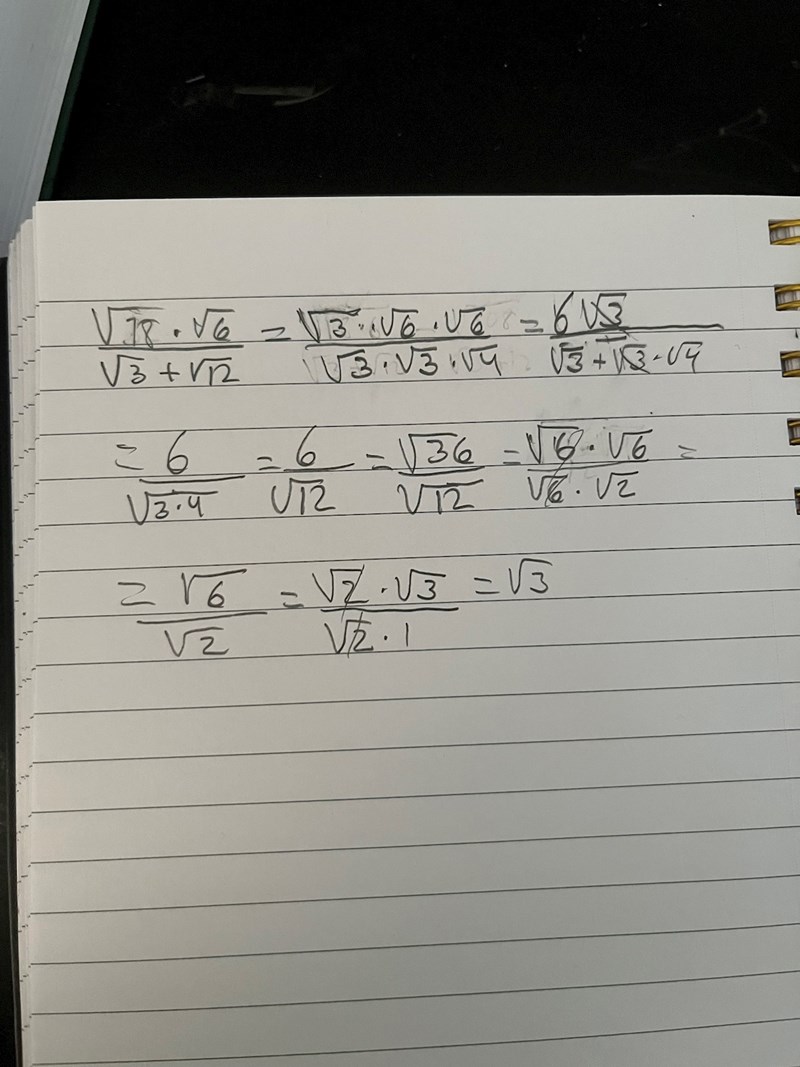 (√18 · √6)/(√3 + √12) = (√3 · √6 · √6)/(√3 · √3 · √4) = (6√3)/(√3 + √3 · √4)
= 6/√(3·4) = 6/√12 = √36/√12 = (√6 · √6)/(√6 · √2) =
= √6/√2 = (√2 · √3)/(√2 · 1) = √3